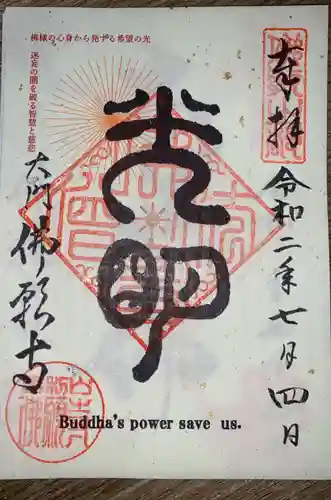 奉拝
令和二年七月四日
光明
佛様の心身から発する希望の光
迷妄の闇を破る智慧と慈悲
佛願寺
Buddha's power save us.